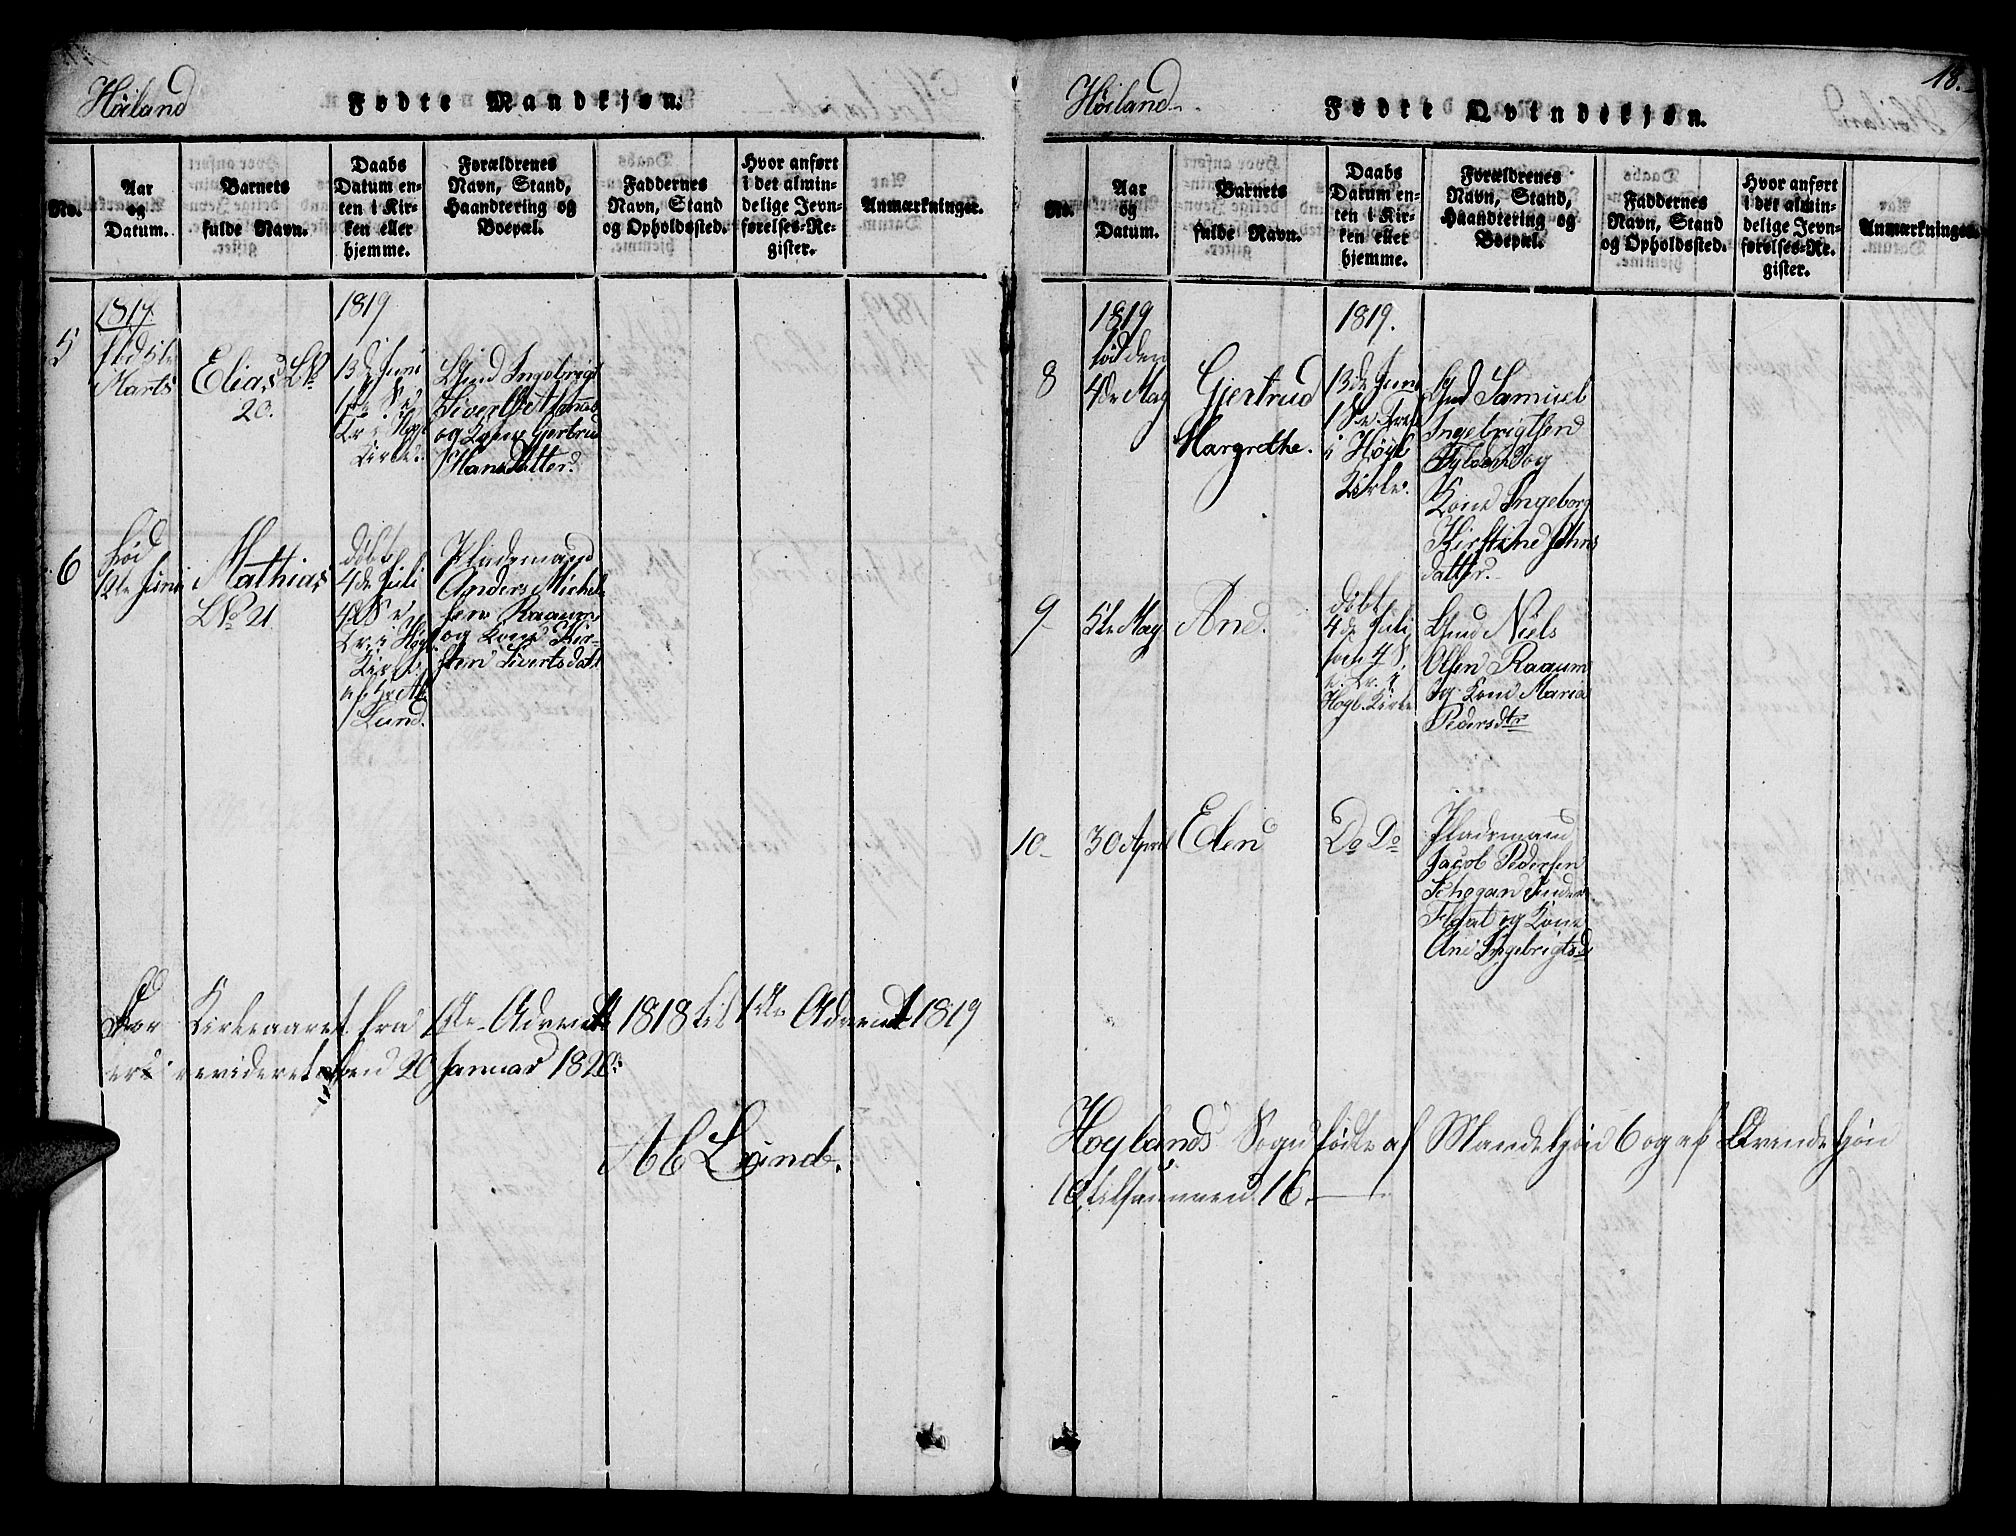 Höiland
Fødte Mandkjøn.
No.
Aar
og
Datum.
Barnets
fulde Navn.
Daabs
Datum en-
ten i Kir-
ken eller
hjemme.
Forældrenes
Navn, Stand,
Haandtering og
Boepæl.
Faddernes
Navn, Stand
og Opholdssted.
Hvor anført
i det almin-
delige Jevn-
førelses-Re-
gister.
Anmærkninger.
5
Marts
Elias
20.
1819
13de Juni
Kirke.
Ingebrigt
og Kone Gjertrud
Hansdatter.
6
fød
12te Juni
Mathias
L No 21
döbt
4de Juli
4 S. e.
Tr. i Høgl.
Kirke
af Hr. A.
Lund.
Pladsmand
Anders Michel-
sen Raaum
og Kone Kir-
sten Sivertsdatt.
For Kirkeaaret fra 1ste Advent 1818 til 1ste Advent 1819
er revideret den 20 Januar 1820.
AC Lund.
18.
Höiland
Fødte Qvindekjøn.
No.
Aar
og
Datum.
Barnets
fulde Navn.
Daabs
Datum en-
ten i Kir-
ken eller
hjemme.
Forældrenes
Navn, Stand,
Haandtering og
Boepæl.
Faddernes
Navn, Stand
og Opholdssted.
Hvor anført
i det almin-
delige Jevn-
førelses-Re-
gister.
Anmærkninger.
8
1819
fød den
4de May
Gjertrud
Margrethe.
1819.
13de Juni
1 S. e. Tref.
i Høgl.
Kirke.
Gmd Samuel
Ingebrigtsen
og
Kone Ingeborg
Kirstine Johns
datter.
9
5te May
Ane.
döbt
4de Juli
som 4 S.
e. Tr. i
Høgl. Kirke
Gmd Niels
Olsen Raaum
og Kone Maria
Pedersdtr
10
30 April
Elen
Do Do
Pladsmand
Jacob Pedersen
og Kone
Ane Ingebrigtsd
Hoylands Sogn fødte af Mandekjøn 6 og af Qvindekjøn
10, tilsammen 16.